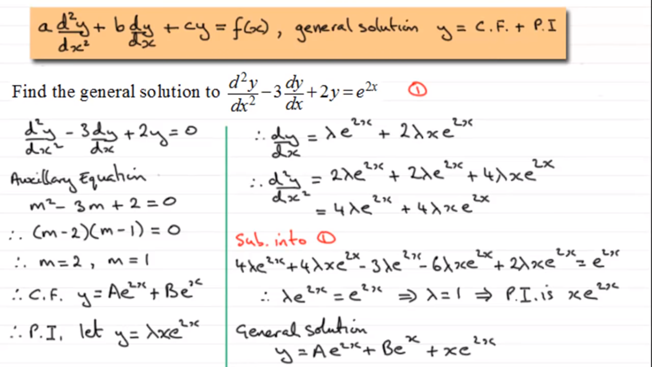 a d²y/dx² + b dy/dx + cy = f(x), general solution y = C.F. + P.I
Find the general solution to d²y/dx² − 3 dy/dx + 2y = e^{2x} ①
d²y/dx² − 3dy/dx + 2y = 0
Auxillary Equation
m² − 3m + 2 = 0
∴ (m − 2)(m − 1) = 0
∴ m = 2, m = 1
∴ C.F. y = Ae^{2x} + Be^{x}
∴ P.I. let y = λxe^{2x}
∴ dy/dx = λe^{2x} + 2λxe^{2x}
∴ d²y/dx² = 2λe^{2x} + 2λe^{2x} + 4λxe^{2x}
= 4λe^{2x} + 4λxe^{2x}
Sub. into ①
4λe^{2x} + 4λxe^{2x} − 3λe^{2x} − 6λxe^{2x} + 2λxe^{2x} = e^{2x}
∴ λe^{2x} = e^{2x} ⇒ λ = 1 ⇒ P.I. is xe^{2x}
General Solution
y = Ae^{2x} + Be^{x} + xe^{2x}